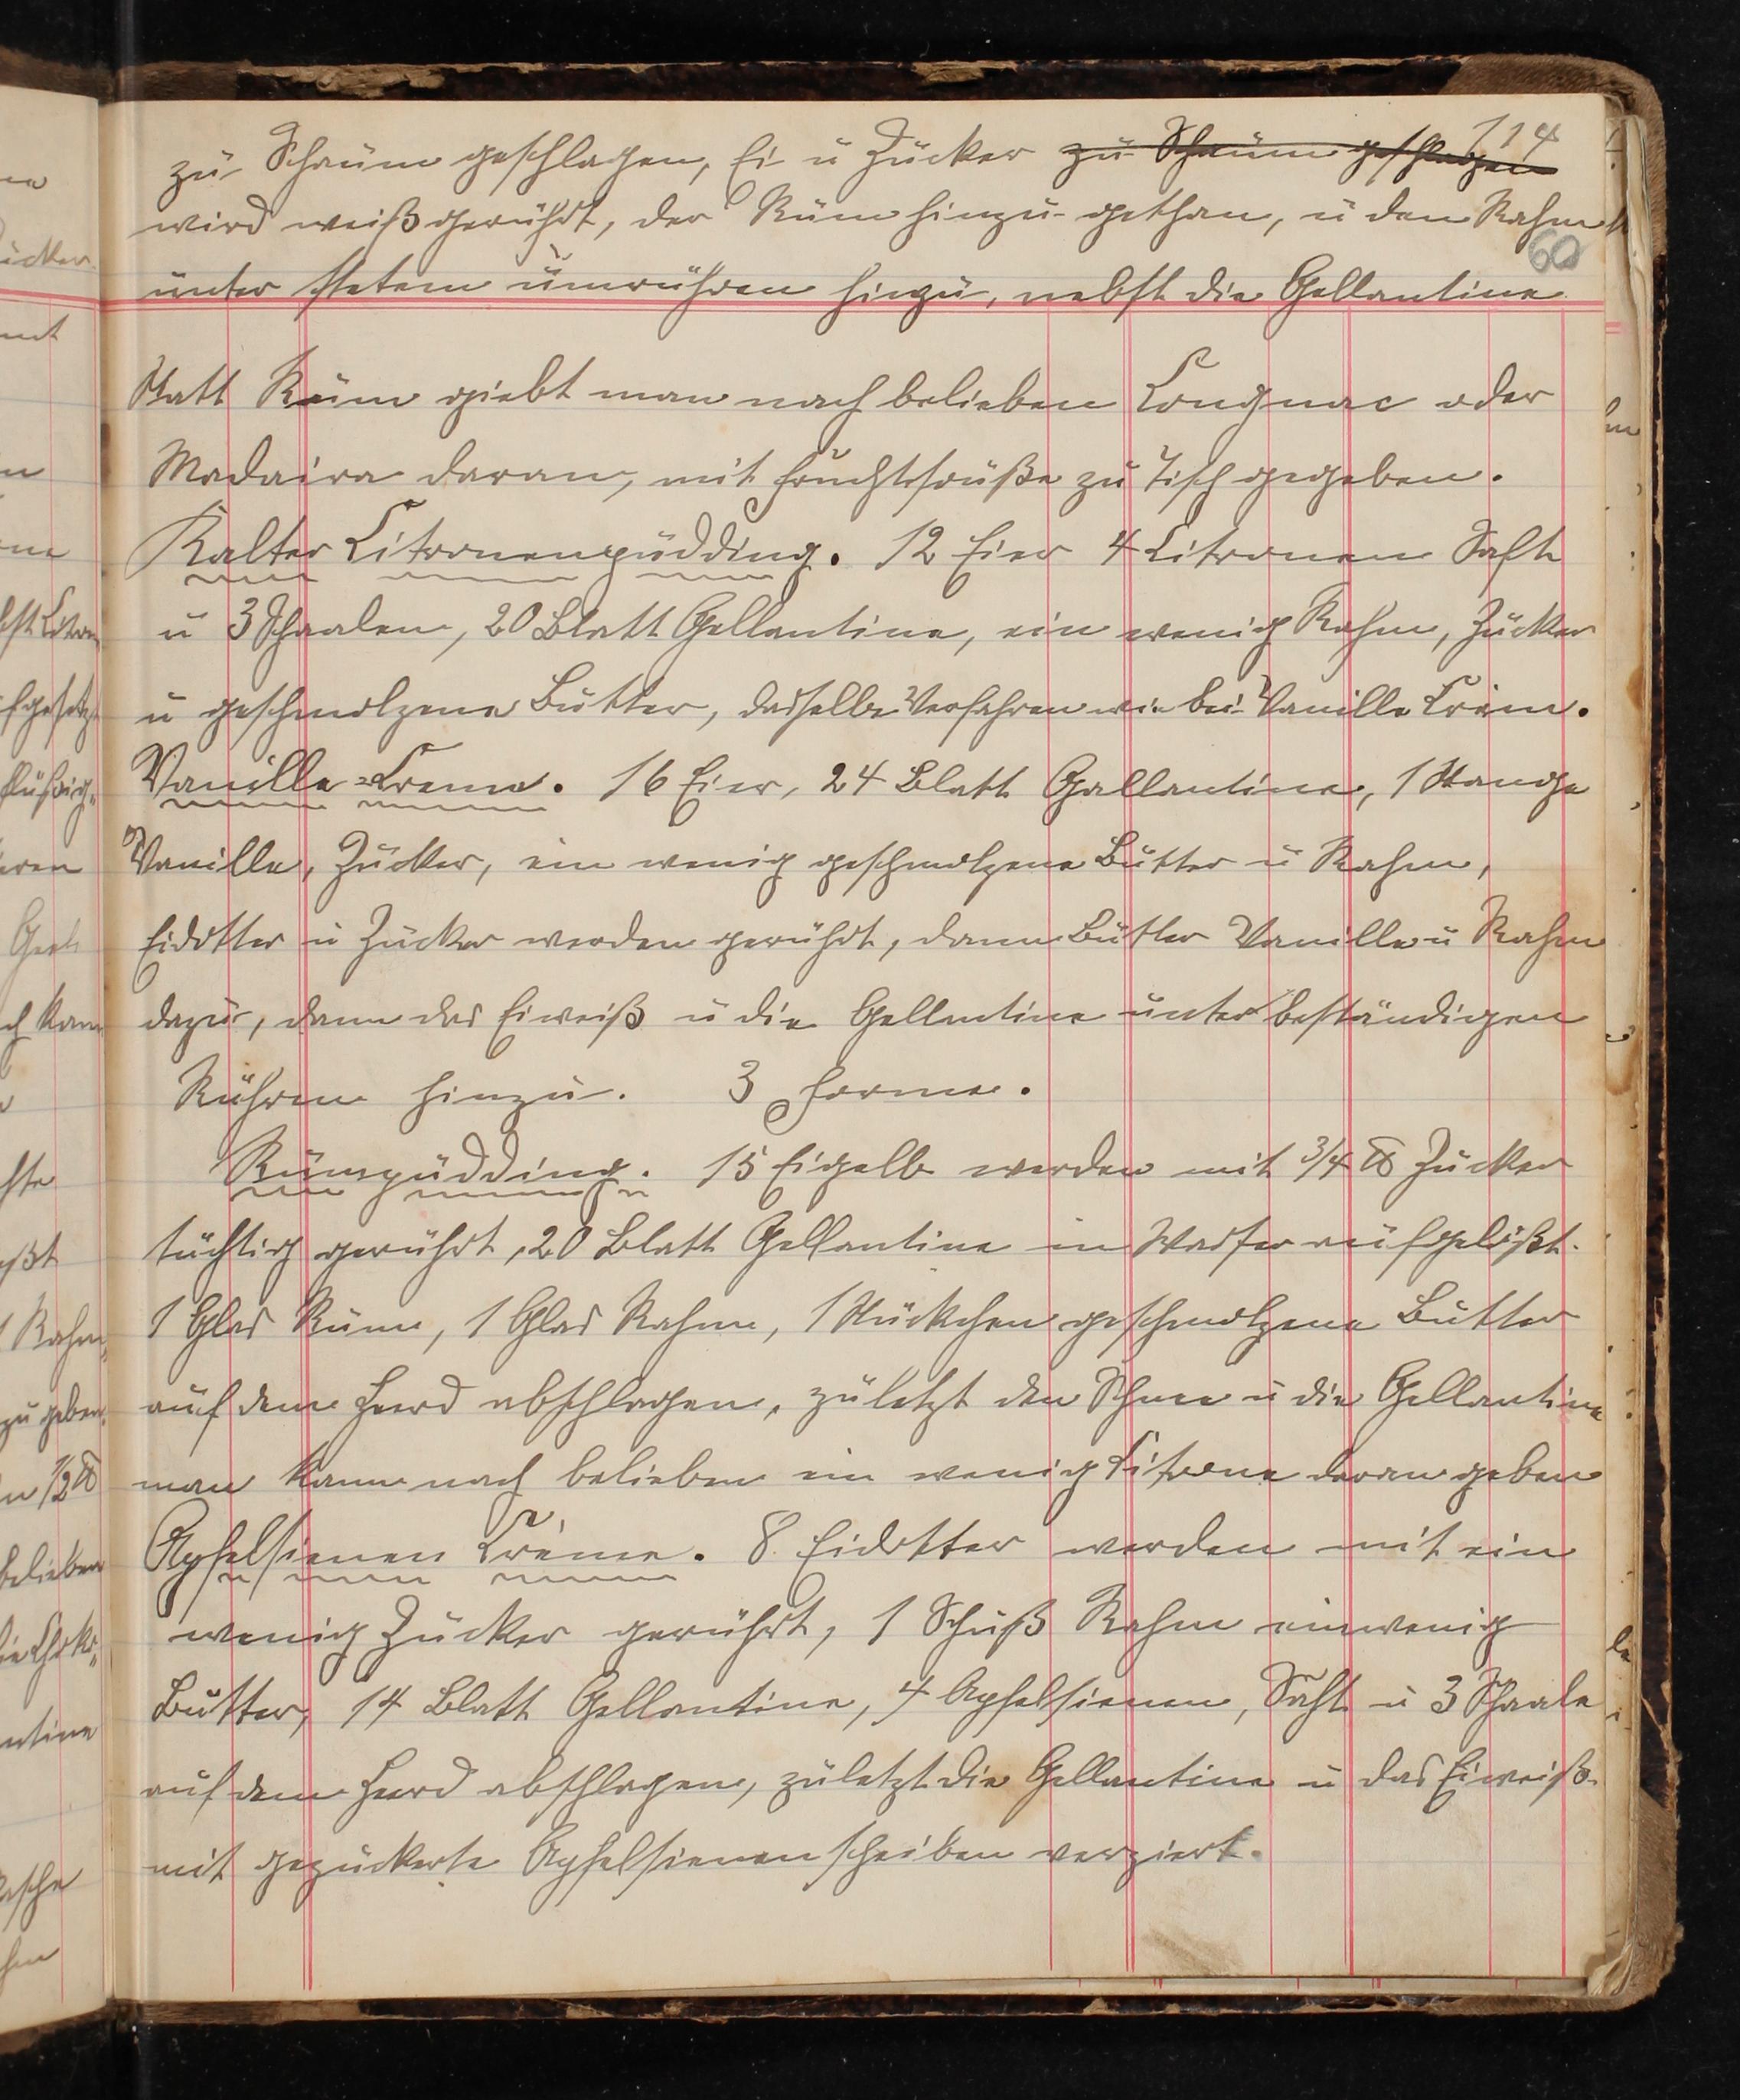 114
zu Schaum geschlagen, Ei u Zucker zu Schaum geschlagen
wird weiß gerührt, der Rum hinzu gethan, u den Rahm
60
unter stetem umrühren hinzu, nebst die Gellantine
Statt Rum giebt man nach belieben Congnac oder
Madaira daran, mit Fruchtsouße zu Tisch gegeben.
Kalter Citronenpudding. 12 Eier 4 Citronen Saft
u 3 Schaalen, 20 Blatt Gellantine, ein wenig Rahm, Zucker
u geschmolzene Butter, dasselbe Verfahren wie bei Vanille Crèm.
Vanille=Creme. 16 Eier, 24 Blatt Gallantine, 1 Stange
Vanille, Zucker, ein wenig geschmolzene Butter u Rahm,
Eidotter u Zucker werden gerührt, dann Butter Vanille u Rahm
dazu, dann das Eiweiß u die Gellantine unter beständigen
Rühren hinzu. 3 Forme.
Rumpudding. 15 Eigelb werden mit 3/4 ℔ Zucker
tüchtig gerührt, 20 Blatt Gellantine in Wasser aufgelößt.
1 Glas Rum, 1 Glas Rahm, 1 Stückchen geschmolzene Butter
auf dem Heerd abschlagen, zuletzt den Schnee u die Gellantine
man kann nach belieben ein wenig Citrone daran geben
Apfelsienen Crème. 8 Eidotter werden mit ein
wenig Zucker gerührt, 1 Schuß Rahm einwenig
Butter, 14 Blatt Gellantine, 4 Apfelsienen, Saft u 3 Schaale
auf dem Heerd abschlagen, zuletzt die Gellantine u das Eiweiß
mit gezuckerte Apfelsienenscheiben verziert.